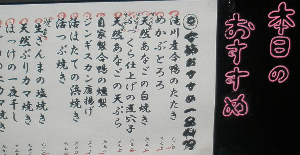 本日の
おすすめ
滝川産合鴨のたたき
めかぶとろろ
天然あなごの白焼き
ふっくら仕上げの煮穴子
天然あなごの天ぷら
自家製合鴨の燻製
ジンギスカン唐揚げ
つぶ焼き
ほたての浜焼き
天然ぶりカマ焼き
生さんまの塩焼き
ほっけの一夜干し